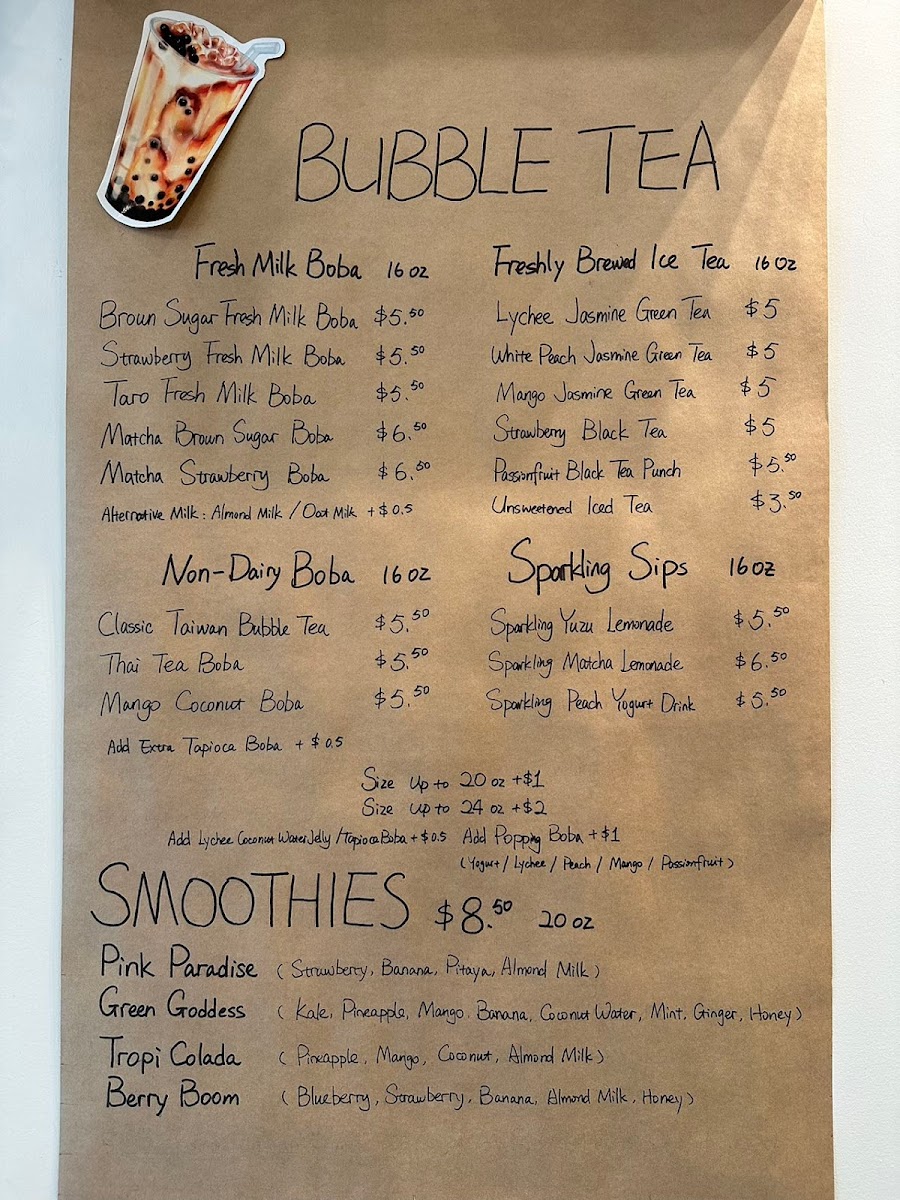 BUBBLE TEA
Fresh Milk Boba 16 oz
Broun Sugar Fresh Milk Boba $5.50
Strawberry Fresh Milk Boba $5.50
Taro Fresh Milk Boba $5.50
Matcha Brown Sugar Boba $6.50
Matcha Strawberry Boba $6.50
Alternative Milk: Almond Milk / Oat Milk +$0.5
Freshly Brewed Ice Tea 16 oz
Lychee Jasmine Green Tea $5
White Peach Jasmine Green Tea $5
Mango Jasmine Green Tea $5
Strawberry Black Tea $5
Passionfruit Black Tea Punch $5.50
Unsweetened Iced Tea $3.50
Non-Dairy Boba 16 oz
Classic Taiwan Bubble Tea $5.50
Thai Tea Boba $5.50
Mango Coconut Boba $5.50
Add Extra Tapioca Boba + $0.5
Sparkling Sips 16 oz
Sparkling Yuzu Lemonade $5.50
Sparkling Matcha Lemonade $6.50
Sparkling Peach Yogurt Drink $5.50
Size Up to 20 oz +$1
Size up to 24 oz +$2
Add Lychee Coconut Water Jelly / Tapioca Boba +$0.5 Add Popping Boba +$1
(Yogurt / Lychee / Peach / Mango / Passionfruit)
SMOOTHIES $8.50 20 oz
Pink Paradise (Strawberry, Banana, Pitaya, Almond Milk)
Green Goddess (Kale, Pineapple, Mango. Banana, Coconut Water, Mint, Ginger, Honey)
Tropi Colada (Pineapple, Mango, Coconut, Almond Milk)
Berry Boom (Blueberry, Strawberry, Banana, Almond Milk, Honey)